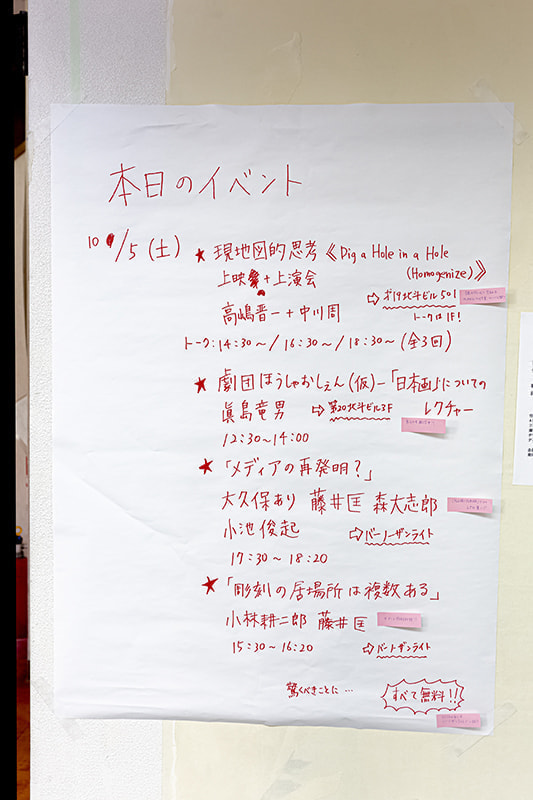 本日のイベント
10/5 (土)
★ 現地図的思考《Dig a Hole in a Hole
(Homogenize)》
上映+上演会
⇨ 才19北斗ビル501
高嶋晋一+中川周
トークは1F!
トーク:14:30~/16:30~/18:30~(全3回)
★ 劇団ほうしゃおしぇん(仮)-「日本画」についての
眞島竜男 ⇨ 第20北斗ビル3F レクチャー
12:30~14:00
★「メディアの再発明?」
大久保あり 藤井匡 森大志郎
小池俊起 ⇨ バーノーザンライト
17:30~18:20
★「彫刻の居場所は複数ある」
小林耕二郎 藤井匡
15:30~16:20 ⇨ バーノーザンライト
驚くべきことに… すべて無料!!